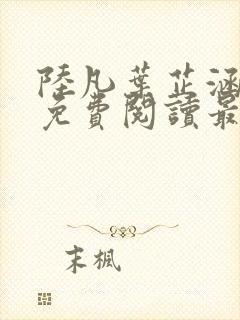 陸凡葉芷涵
免費閱讀最
末楓